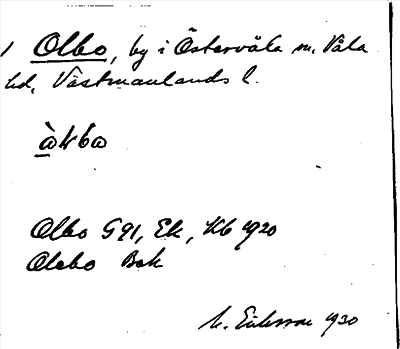 1 Olbo, by i Östervåla sn. Våla
hd, Västmanlands l.
Olbo G 91, Ek, Kb 1920
Olebo Bsk
M. Eriksson 1930